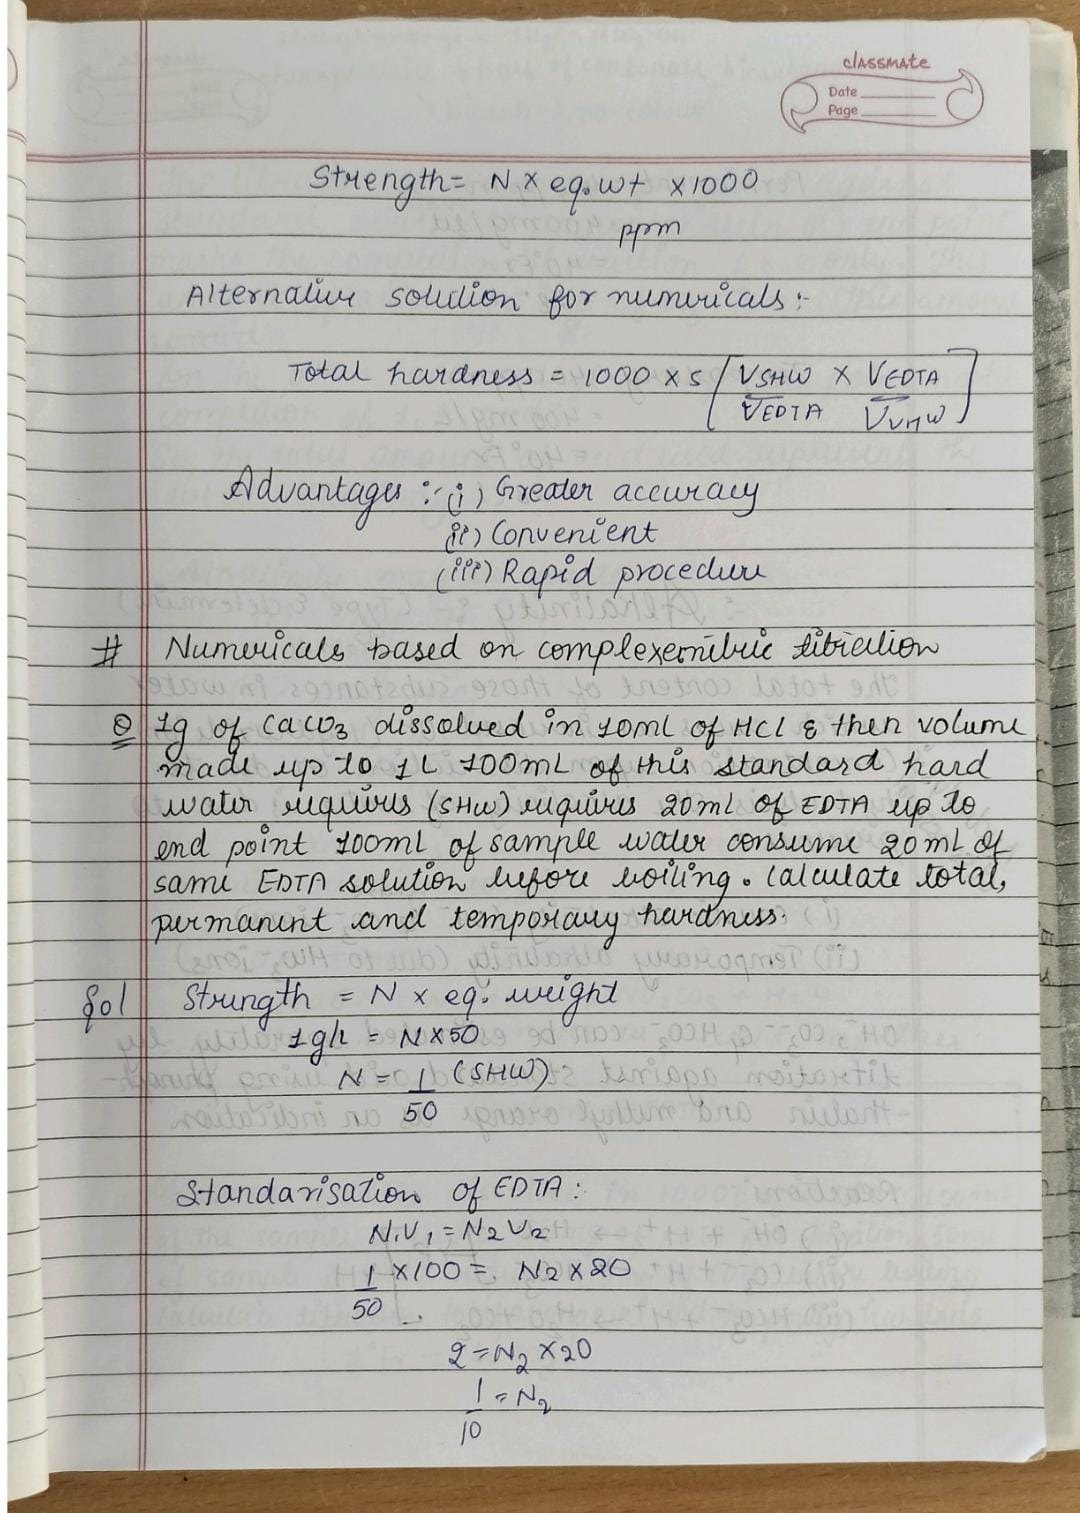 classmate
Date
Page
Strength = N × eq. wt × 1000
ppm
Alternative solution for numericals :-
Total hardness = 1000 × S [ VSHW/VEDTA × VEDTA/VUHW ]
Advantages :- (i) Greater accuracy
(ii) Convenient
(iii) Rapid procedure
# Numericals based on complexemitric titration
Q 1g of CaCO3 dissolved in 10ml of HCl & then volume
made up to 1L 100mL of this standard hard
water requires (SHW) requires 20ml of EDTA up to
end point 100ml of sample water consume 20ml of
same EDTA solution before boiling. Calculate total,
permanent and temporary hardness.
Sol Strength = N × eq. weight
1g/L = N×50
N = 1/50 (SHW)
Standarisation of EDTA :
N1V1 = N2V2
1/50 × 100 = N2 × 20
2 = N2 × 20
1/10 = N2